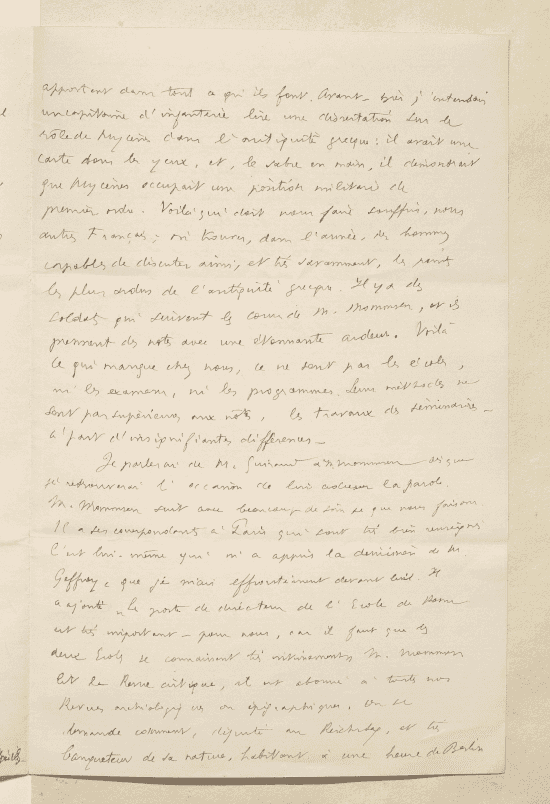 apportent dans tout ce qu'ils font. Avant-hier j'entendais
un capitaine d'infanterie lire une dissertation sur le
rôle de Mycènes dans l'antiquité grecque : il avait une
carte dans les yeux, et, le sabre en main, il démontrait
que Mycènes occupait une position militaire de
premier ordre. Voilà qui doit nous faire souffrir, nous
autres Français ; où trouver, dans l'armée, des hommes
capables de discuter ainsi, et très savamment, les points
les plus ardus de l'antiquité grecque. Il y a des
soldats qui suivent les cours de M. Mommsen, et ils
prennent des notes avec une étonnante ardeur. Voilà
ce qui manque chez nous, ce ne sont pas les écoles,
ni les examens, ni les programmes. Leurs méthodes ne
sont pas supérieures aux nôtres, les travaux des séminaires -
à part d'insignifiantes différences -
Je parlerai de M. Guiraud à M. Mommsen dès que
je retrouverai l'occasion de lui adresser la parole.
M. Mommsen suit avec beaucoup de soin ce que nous faisons
Il a ses correspondants à Paris qui sont très bien renseignés
C'est lui-même qui m'a appris la démission de M.
Geffroy, que j'ai niée effrontément devant lui. Il
a ajouté "Le poste de directeur de l'Ecole de Rome
est très important - pour nous, car il faut que les
deux Ecoles se connaissent très intimement". M. Mommsen
lit la Revue critique, il est abonné à toutes nos
Revues archéologiques ou épigraphiques. On se
demande comment, député au Reichstag, et très
banqueteur de sa nature, habitant à une heure de Berlin